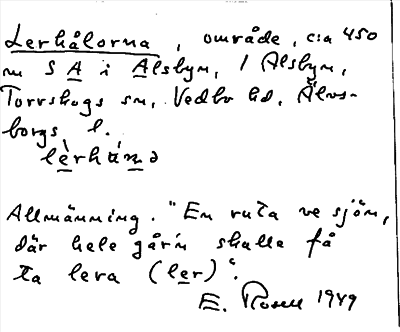 Lerhålorna, område, c:a 450
m S A i Alsbyn, / Alsbyn,
Torrskogs sn, Vedbo hd, Älvs-
borgs l.
lèrhá̀nə
Allmänning. "En ruta ve sjön,
där hele går'n skulle få
ta lera (ler)".
E. Rosell 1949